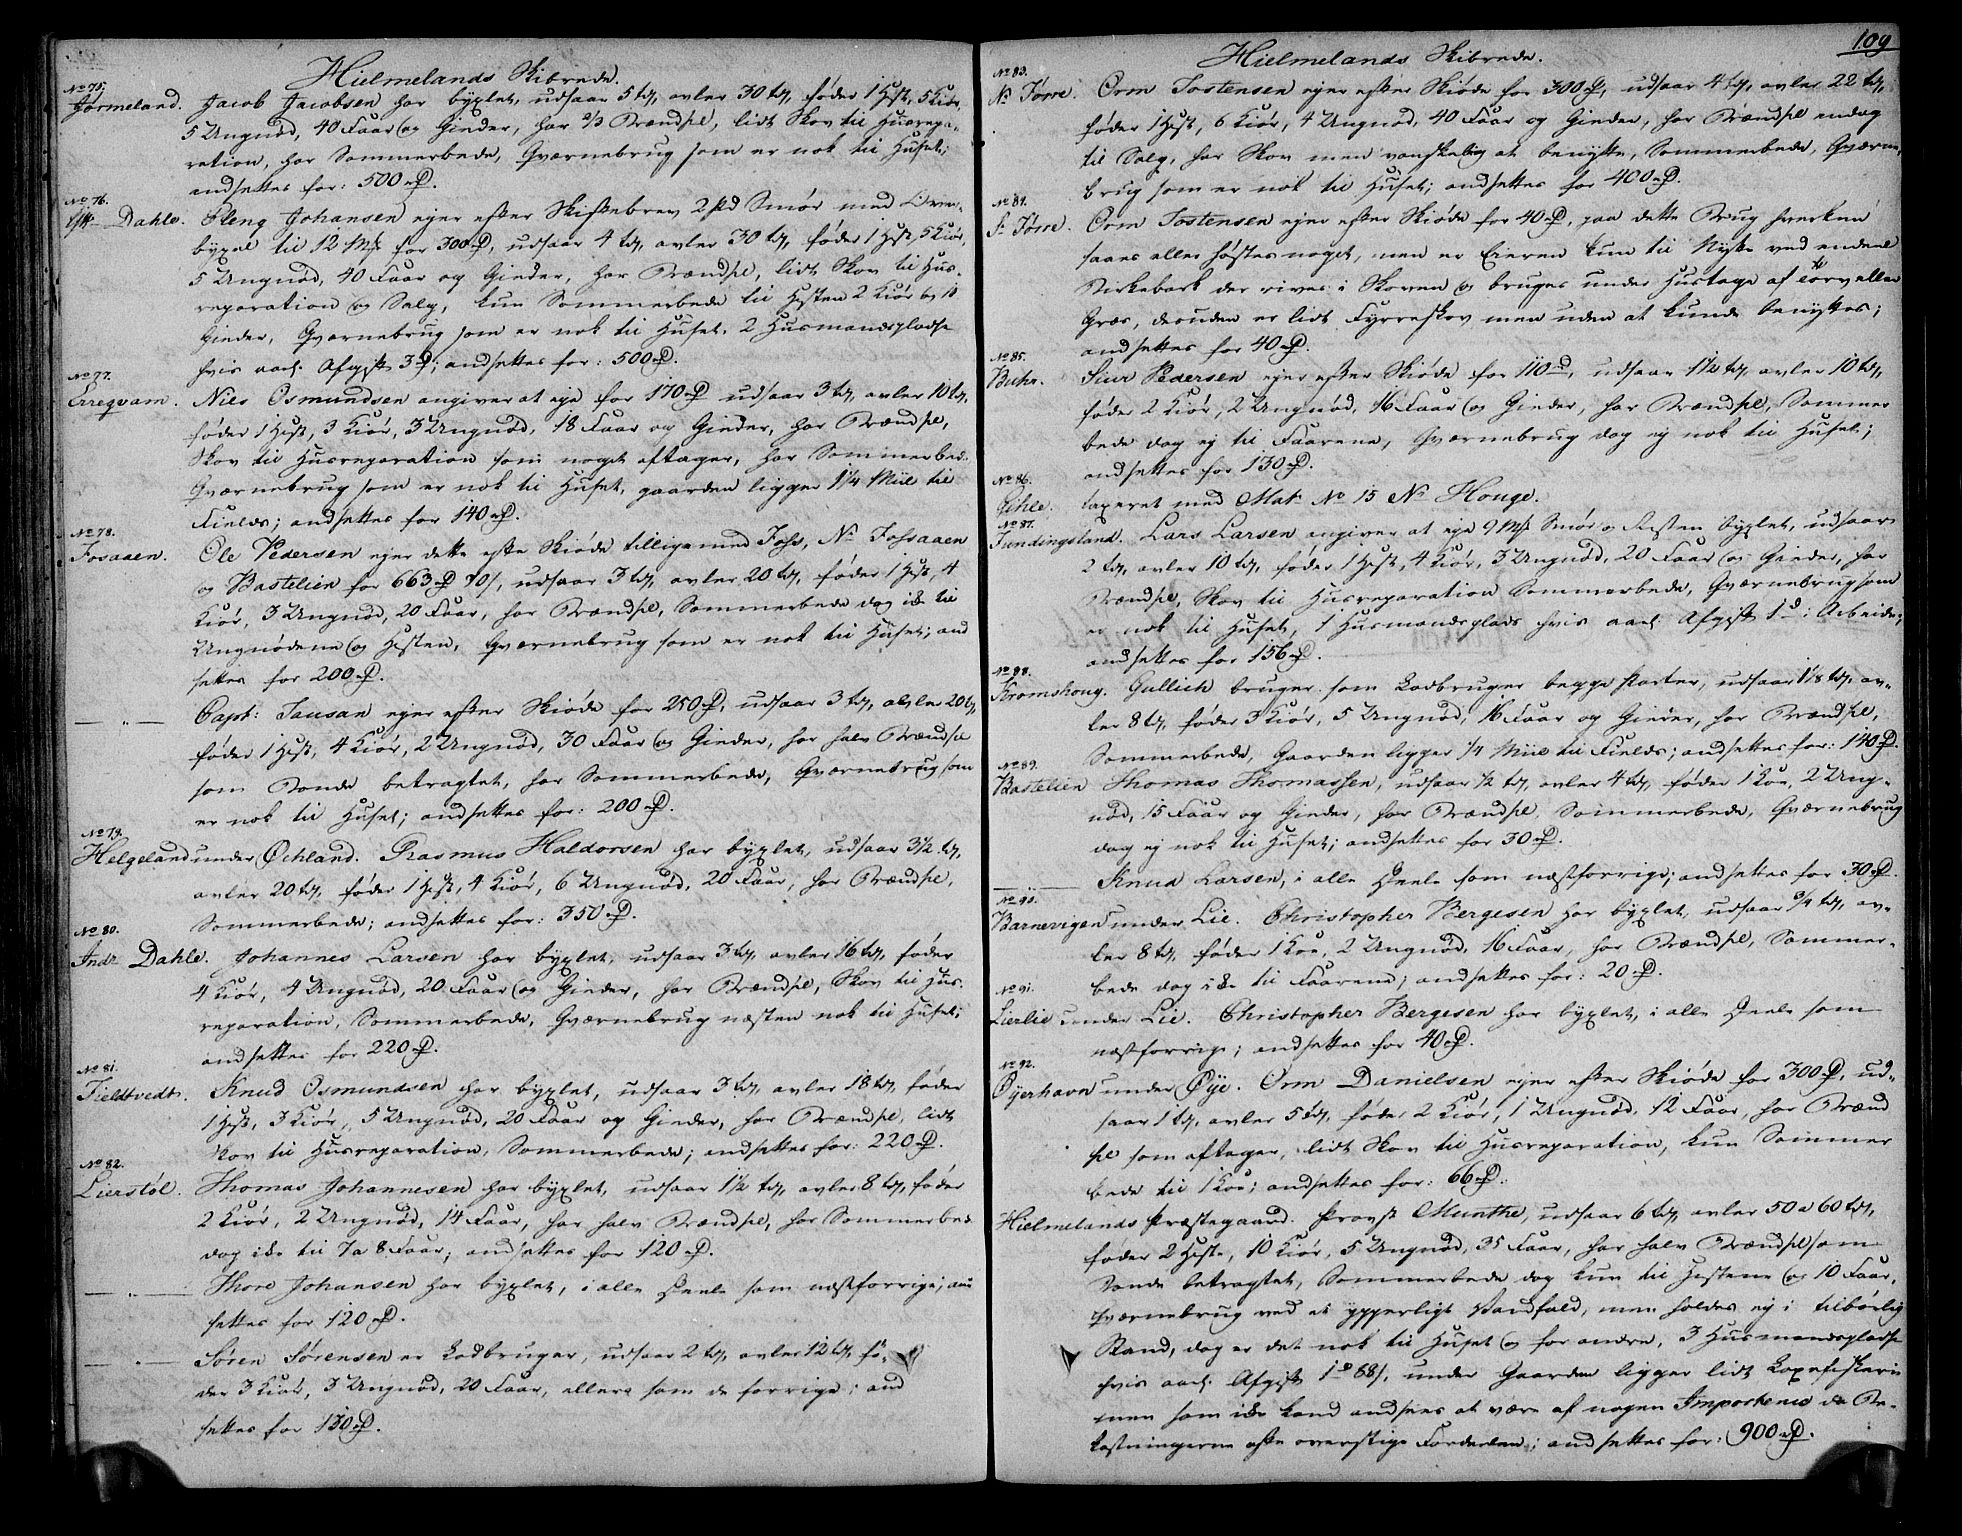 Hielmelands Skibrede.
No 75.
Jørmeland. Jacob Jacobsen har byxlet, udsaar 5 td, avler 30 td, føder 1 Hest, 5 Kiör,
5 Ungnød, 40 Faar og Gieder, har 2/3 Brændsel, lidt Skov til Husrepa-
ration, har Sommerbede, Qværnebrug som er nok til Huset;
andsettes for: 500 rD.
No 76.
Dahle. Pleng Johansen ejer efter Skiftebrev 2 pd Smør med Over-
byxel til 12 Mk for 300 rD, udsaar 4 td, avler 30 td, føder 1 Hest, 5 Kiör,
5 Ungnød, 40 Faar og Gieder, har Brændsel, lidt Skov til Hus-
reparation og Salg, kun Sommerbede til Hesten 2 Kiör og 10
Gieder, Qværnebrug som er nok til Huset, 2 Husmandspladse
hvis aarl. Afgift 3 D; andsettes for: 500 rD.
No 77.
Erreqvam. Nils Osmundsen angiver at eje for 170 rD udsaar 3 td, avler 10 td,
føder 1 Hest, 3 Kiör, 3 Ungnød, 18 Faar og Gieder, har Brændsel,
Skov til Husreparation som noget aftager, har Sommerbede
Qværnebrug som er nok til Huset, gaarden ligger 1 1/4 Miil til
Fields; andsettes for 140 rD.
No 78.
Fosaaen. Ole Pedersen ejer dette efter Skiøde tilligemed Foss, No Fossaaen
og Bastelien for 663 rD 70 s, udsaar 3 td, avler 20 td, føder 1 Hest, 4
Kiör, 3 Ungnød, 20 Faar, har Brændsel, Sommerbede dog ikke til
Ungnødene og Hesten, Qværnebrug som er nok til Huset; and
settes for 200 rD.
— " — Capt: Tausan ejer efter Skiøde for 250 rD, udsaar 3 td, avler 20 td,
føder 1 Hest, 4 Kiör, 2 Ungnød, 30 Faar og Gieder, har halv Brændsel
som Bonde betragtet, har Sommerbede, Qværnebrug som
er nok til Huset; andsettes for: 200 rD.
No 79.
Helgeland under Øchland. Rasmus Haldorsen har byxlet, udsaar 3 1/2 td,
avler 20 td, føder 1 Hest, 4 Kiör, 6 Ungnød, 20 Faar, har Brændsel,
Sommerbede; andsettes for: 350 rD.
No 80.
Andr Dahle. Johannes Larsen har byxlet, udsaar 3 td, avler 16 td, føder
4 Kiör, 4 Ungnød, 20 Faar og Gieder, har Brændsel, Skov til Hus-
reparation, Sommerbede, Qværnebrug næsten nok til Huset;
andsettes for 220 rD.
No 81.
Fieldtvedt. Knud Osmundsen har byxlet, udsaar 3 td, avler 18 td, føder
1 Hest, 3 Kiör, 5 Ungnød, 20 Faar og Gieder, har Brændsel, lidt
Skov til Husreparation, Sommerbede; andsettes for: 220 rD.
No 82.
Lierstöl. Thomas Johannesen har byxlet, udsaar 1 1/2 td, avler 8 td, føder
2 Kiör, 2 Ungnød, 14 Faar, har halv Brændsel, har Sommerbede
dog ikke til 7 a 8 Faar; andsettes for 120 rD.
— " — Thore Johansen har byxlet, i alle Deele som næstforrige; and
settes for 120 rD.
— " — Søren Sørensen er Ladbruger, udsaar 2 td, avler 12 td, fø-
der 3 Kiör, 3 Ungnød, 20 Faar, ellers som de forrige; and
settes for 130 rD.
109
Hielmelands Skibrede.
No 83.
No Tørre. Orm Tostensen ejer efter Skiøde for 300 rD, udsaar 4 td, avler 22 td,
føder 1 Hest, 6 Kiör, 4 Ungnød, 40 Faar og Gieder, har Brændsel endog
til Salg, har Skov men vanskelig at benytte, Sommerbede, Qværne-
brug som er nok til Huset; andsettes for 400 rD.
No 84.
Sr Tørre. Orm Tostensen ejer efter Skiøde for 40 rD, paa dette Brug hverken
saaes eller høstes noget, men er Eieren kun til Nytte ved endeel
Birkebark der rives i Skoven og bruges under Hustage af Torv eller
Græs, desuden er lidt Fyrreskov men uden at kunde benyttes;
andsettes for 40 rD.
No 85.
Buhn. Siur Pedersen ejer efter Skiøde for 110 rD, udsaar 1 1/2 td, avler 10 td,
føder 2 Kiör, 2 Ungnød, 16 Faar og Gieder, har Brændsel, Sommer
bede dog ej til Faarene, Qværnebrug dog ej nok til Huset;
andsettes for 130 rD.
No 86.
Gihle. taxeret med Mat No 15 No Houge.
No 87.
Fundingsland. Lars Larsen angiver at eje 9 Mk Smør og Resten byxlet, udsaar
2 td, avler 10 td, føder 1 Hest, 4 Kiör, 3 Ungnød, 20 Faar og Gieder, har
Brændsel, Skov til Husreparation Sommerbede, Qværnebrug som
er nok til Huset, 1 Husmandsplads hvis aarl. Afgift 1 D i Arbeide;
andsettes for 156 rD.
No 88.
Kromshoug. Gullich bruger som Ladbruger begge Parter, udsaar 1 1/8 td, av-
ler 8 td, føder 3 Kiör, 5 Ungnød, 16 Faar og Gieder, har Brændsel,
Sommerbede, Gaarden ligger 1/4 Miil til Fields; andsettes for: 140 rD.
No 89.
Bastelien Thomas Thomassen, udsaar 1/2 td, avler 4 td, føder 1 Koe, 2 Ung-
nød, 15 Faar og Gieder, har Brændsel, Sommerbede, Qværnebrug
dog ej nok til Huset; andsettes for 30 rD.
— Knud Larsen, i alle Deele som næstforrige; andsettes for 30 rD.
No 90.
Barnevigen under Lie. Christopher Bergesen har byxlet, udsaar 3/4 td, av-
ler 8 td, føder 1 Koe, 2 Ungnød, 16 Faar, har Brændsel, Sommer-
bede dog ikke til Faarene; andsettes for: 20 rD.
No 91.
Lierlie under Lie. Christopher Bergesen har byxlet, i alle Deele som
næstforrige; andsettes for 40 rD.
No 92.
Øyerhavn under Øye. Orm Danielsen ejer efter Skiøde for 300 rD, ud-
saar 1 td, avler 5 td, føder 2 Kiör, 1 Ungnød, 12 Faar, har Brænd
sel som aftager, lidt Skov til Husreparation, kun Sommer
bede til 1 Koe; andsettes for: 66 rD.
Hielmelands Præstegaard. Provst Munthe, udsaar 6 td, avler 50 a 60 td,
føder 2 Heste, 10 Kiör, 5 Ungnød, 35 Faar, har halv Brændsel som
Bonde betragtet, Sommerbede dog kun til Hestene og 10 Faar,
Qværnebrug ved et ypperligt Vandfald, men holdes ej i tilbørlig
Stand, dog er det nok til Huset og for andre, 3 Husmandspladse
hvis aarl. Afgift 1 D 68 s, under Gaarden ligger lidt Laxefiskerie
men som ikke kand andsees at være af nogen Importence da Be-
kostningerne ofte overstige Fordelen; andsettes for: 900 rD.